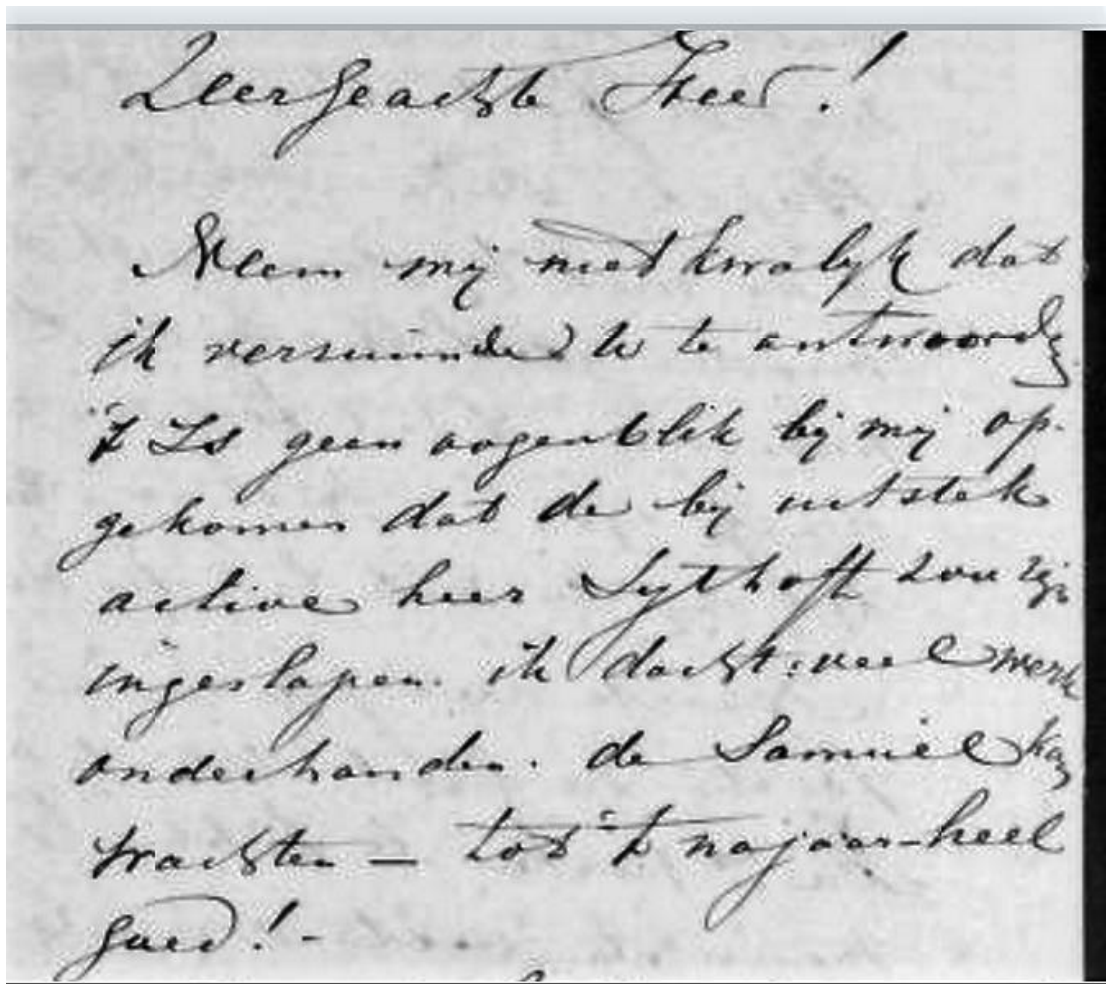 Zeergeachte Heer!
Neem mij niet kwalijk dat
ik verzuimde U te antwoorden
't Is geen oogenblik bij mij op-
gekomen dat de bij uitstek
active heer Sythoff zou zijn
ingeslapen. ik dacht: veel werk
onderhanden. de Samuel kan
wachten — tot 't najaar - heel
goed! -